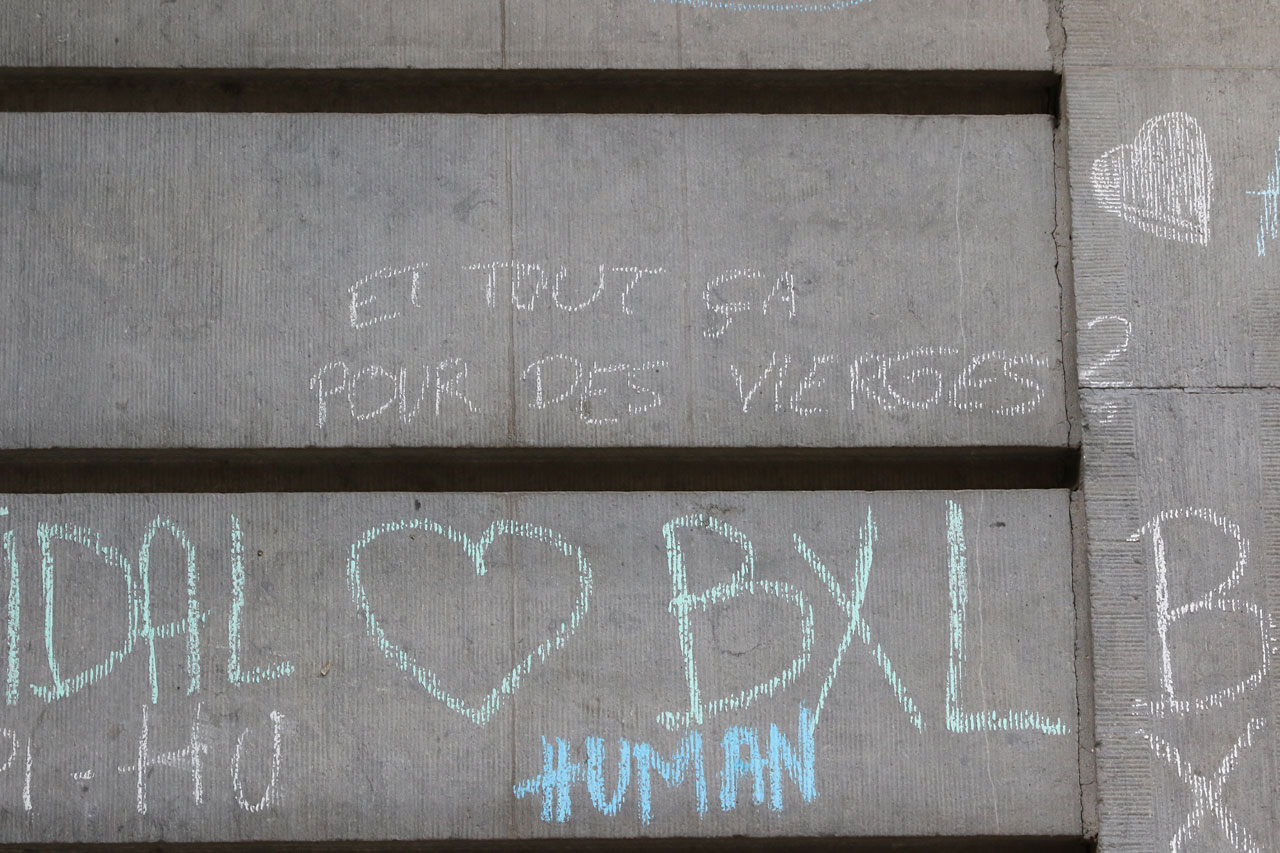 ET TOUT ÇA
POUR DES VIERGES
IDAL ♥ BXL
PI-HU
HUMAN
2
B
X